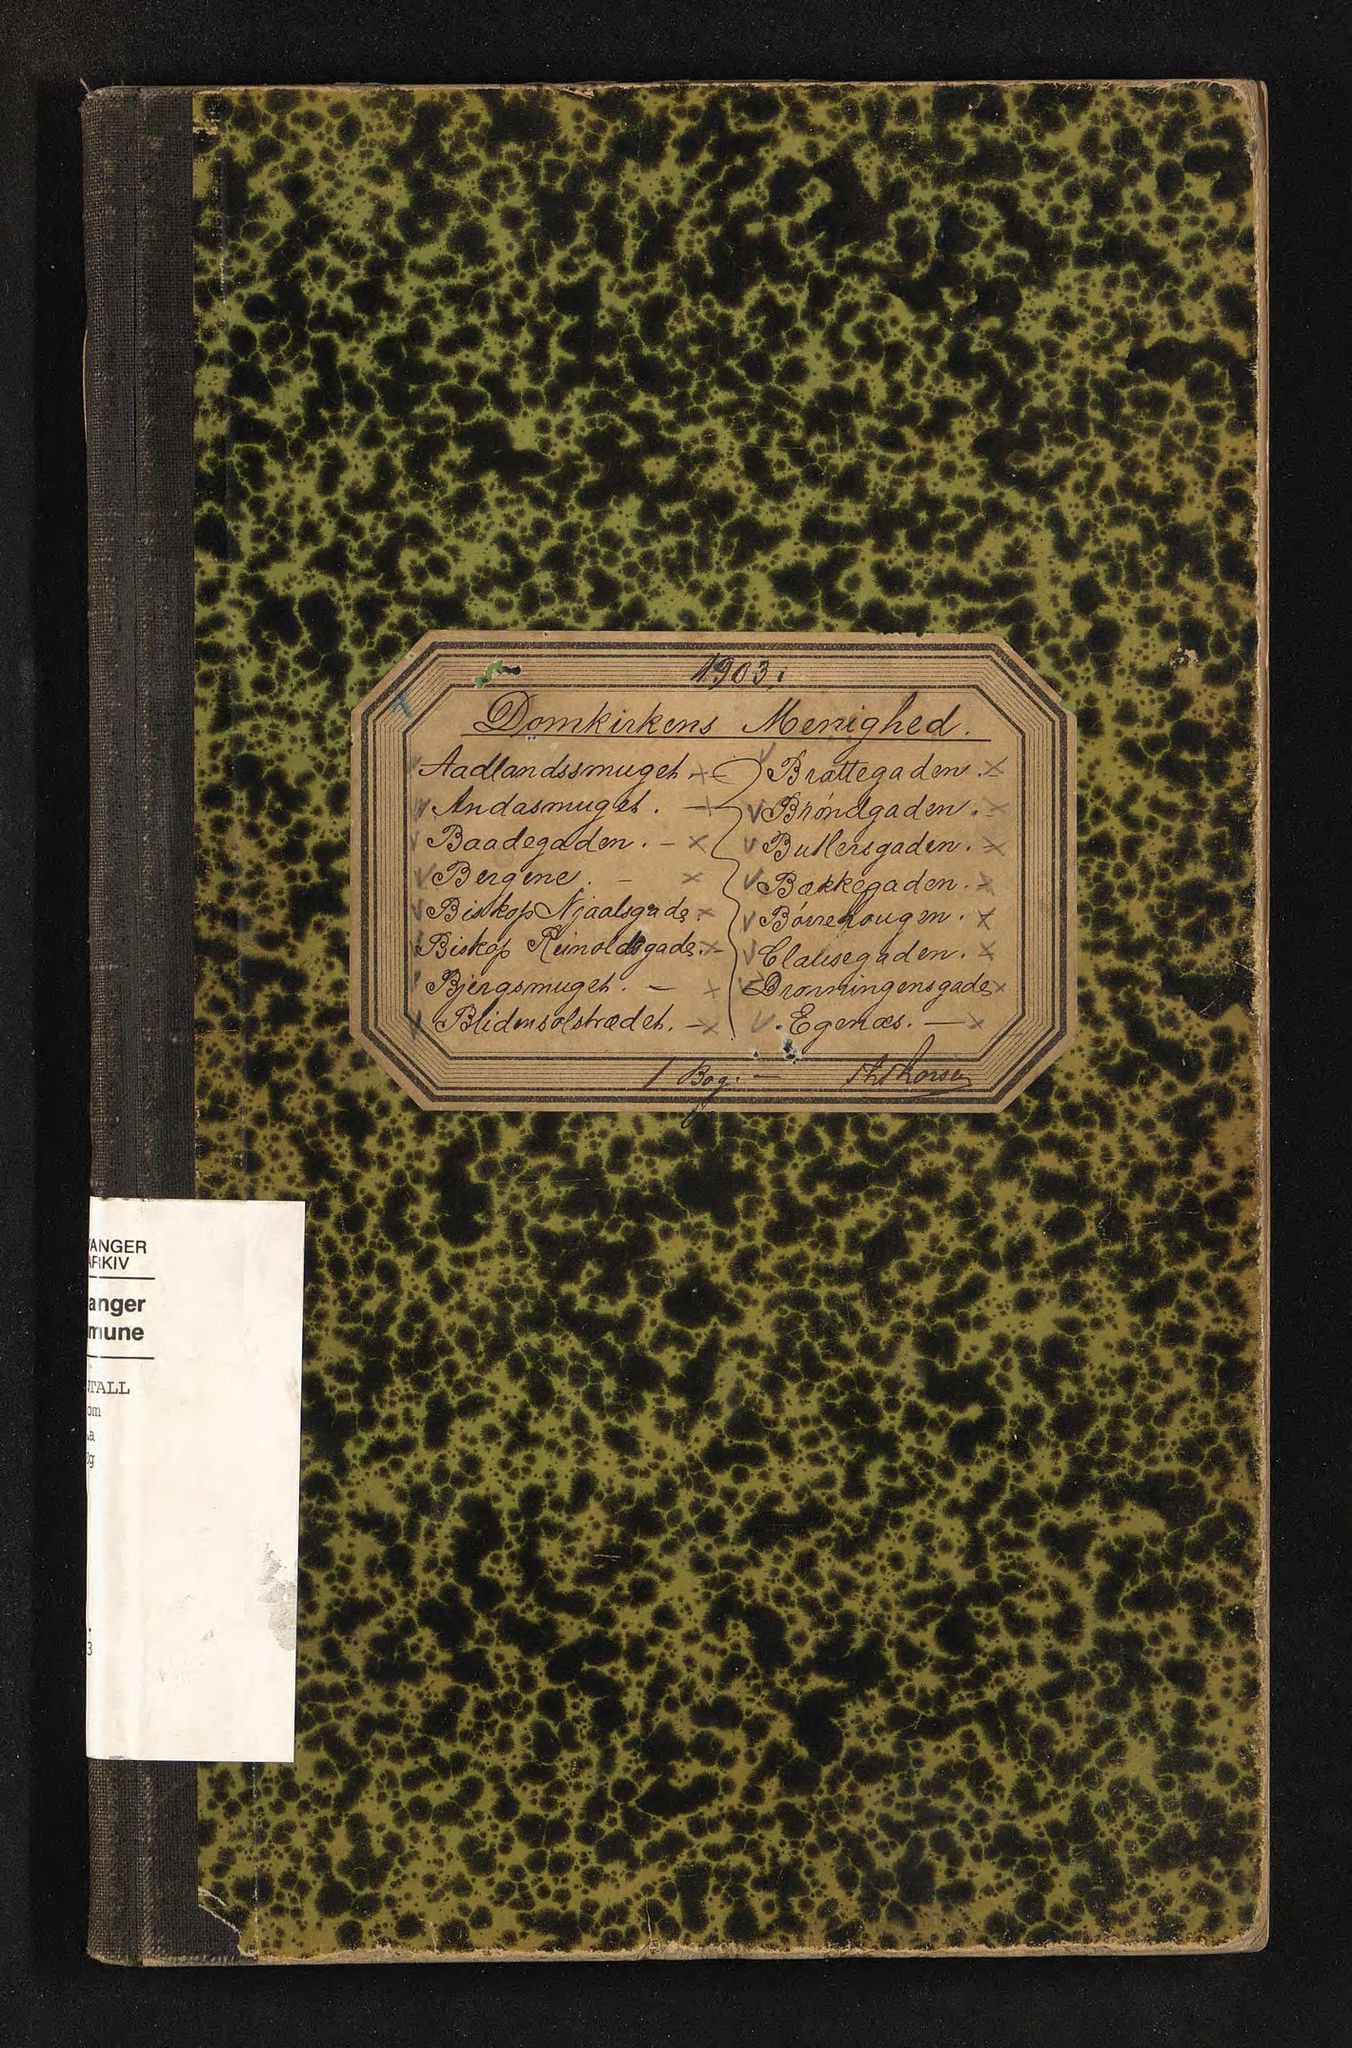 1903.
Domkirkens Menighed.
Aadlandssmuget
Andasmuget. -
Baadegaden. -
Bergene. -
Biskop Njaalsgade.
Biskop Reinoldsgade. -
Bjergsmuget. -
Blidensolstrædet. -
Brattegaden.
Brøndgaden.
Butlersgaden.
Bækkegaden.
Børrehougen.
Clausegaden.
Dronningensgade
Egenæs. -
1 Bog. -
VANGER
ARKIV
anger
mune
TALL
om
3